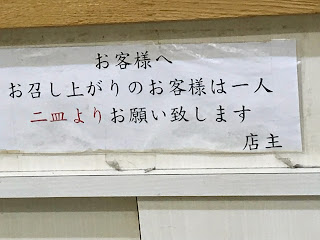 お客様へ
お召し上がりのお客様は一人
二皿よりお願い致します
店主